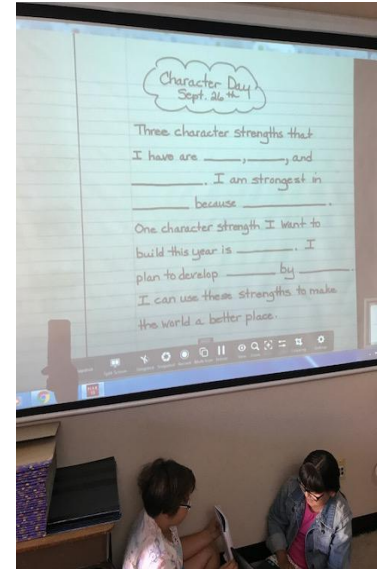 Character Day
Sept. 26th
Three character strengths that
I have are ______, ______, and
______. I am strongest in
______ because ______.
One character strength I want to
build this year is ______. I
plan to develop ______ by ______.
I can use these strengths to make
the world a better place.